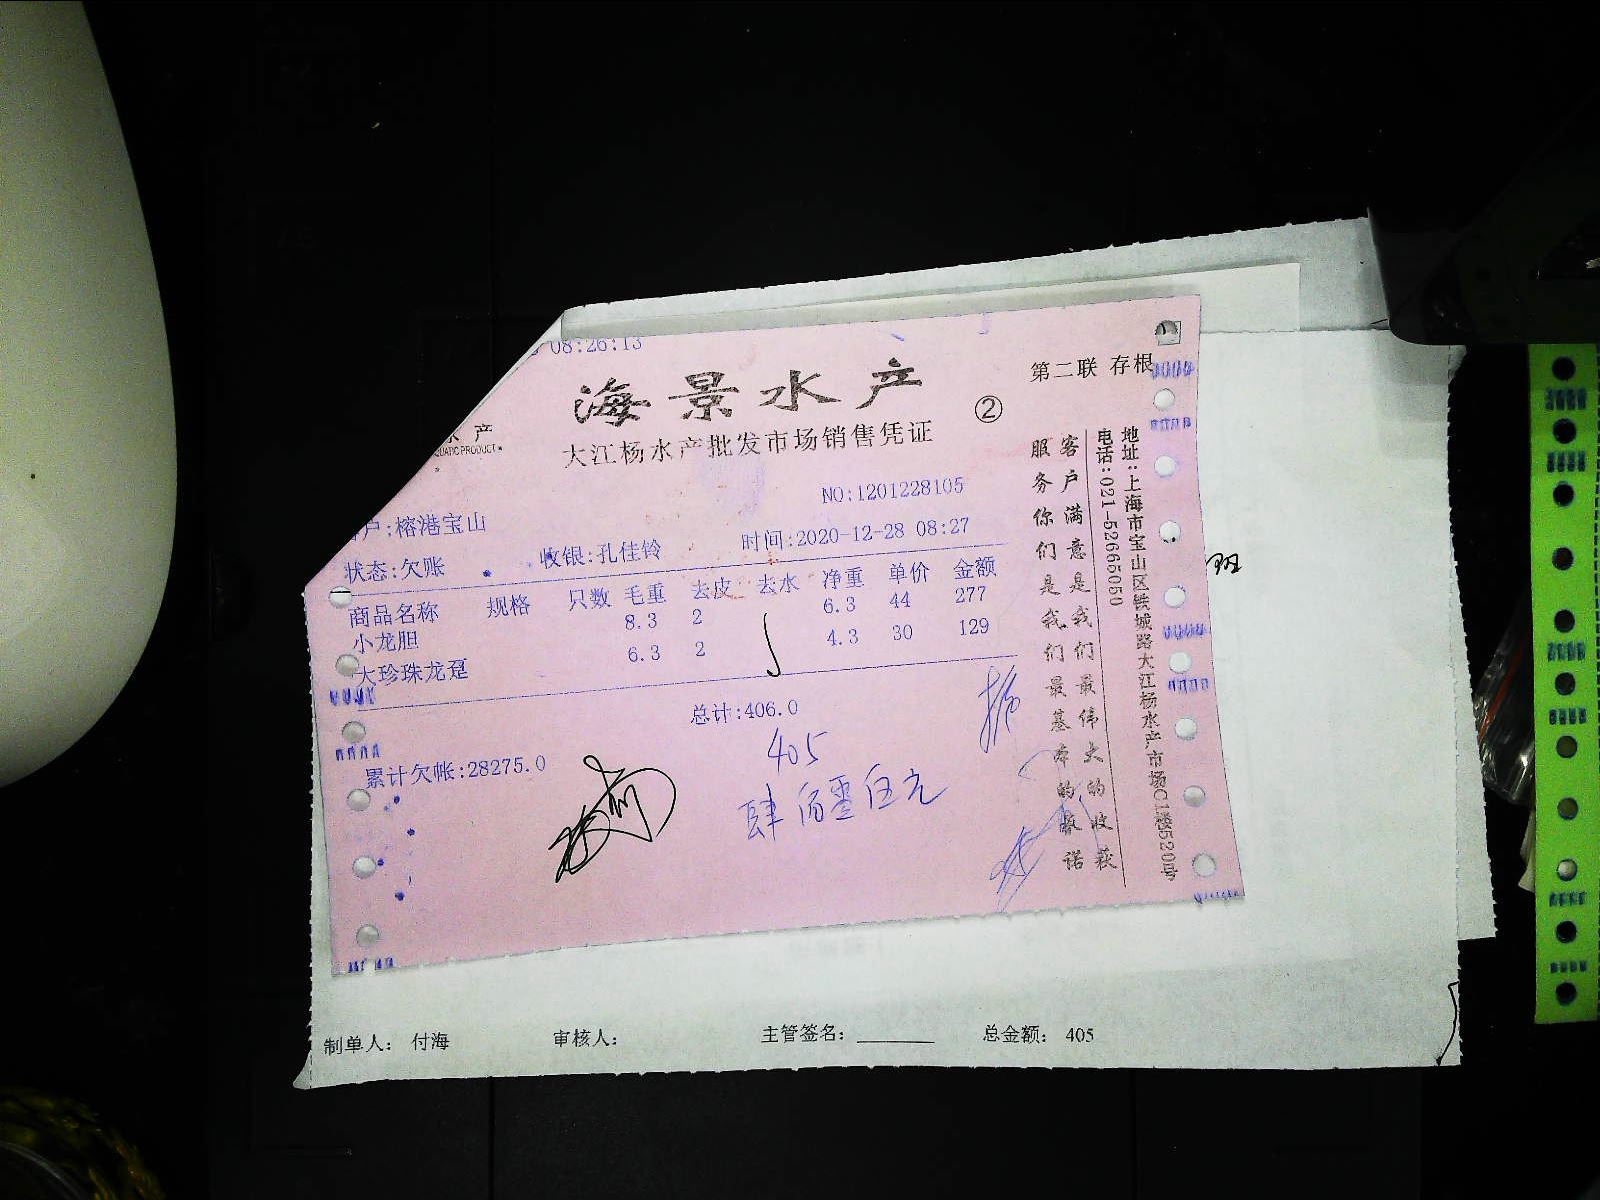 08:26:13
海景水产
②
第二联 存根
水产
大江杨水产批发市场销售凭证
NO:1201228105
户:榕港宝山
状态:欠账 收银:孔佳铃 时间:2020-12-28 08:27
商品名称 规格 只数 毛重 去皮 去水 净重 单价 金额
小龙胆 8.3 2 6.3 44 277
大珍珠龙趸 6.3 2 4.3 30 129
总计:406.0
累计欠帐:28275.0
405
肆佰零伍元
客户满意是我们最伟大的收获
服务你们是我们最基本的承诺
地址:上海市宝山区铁城路大江杨水产市场C1楼520号
电话:021-52665050
制单人: 付海 审核人: 主管签名: 总金额: 405